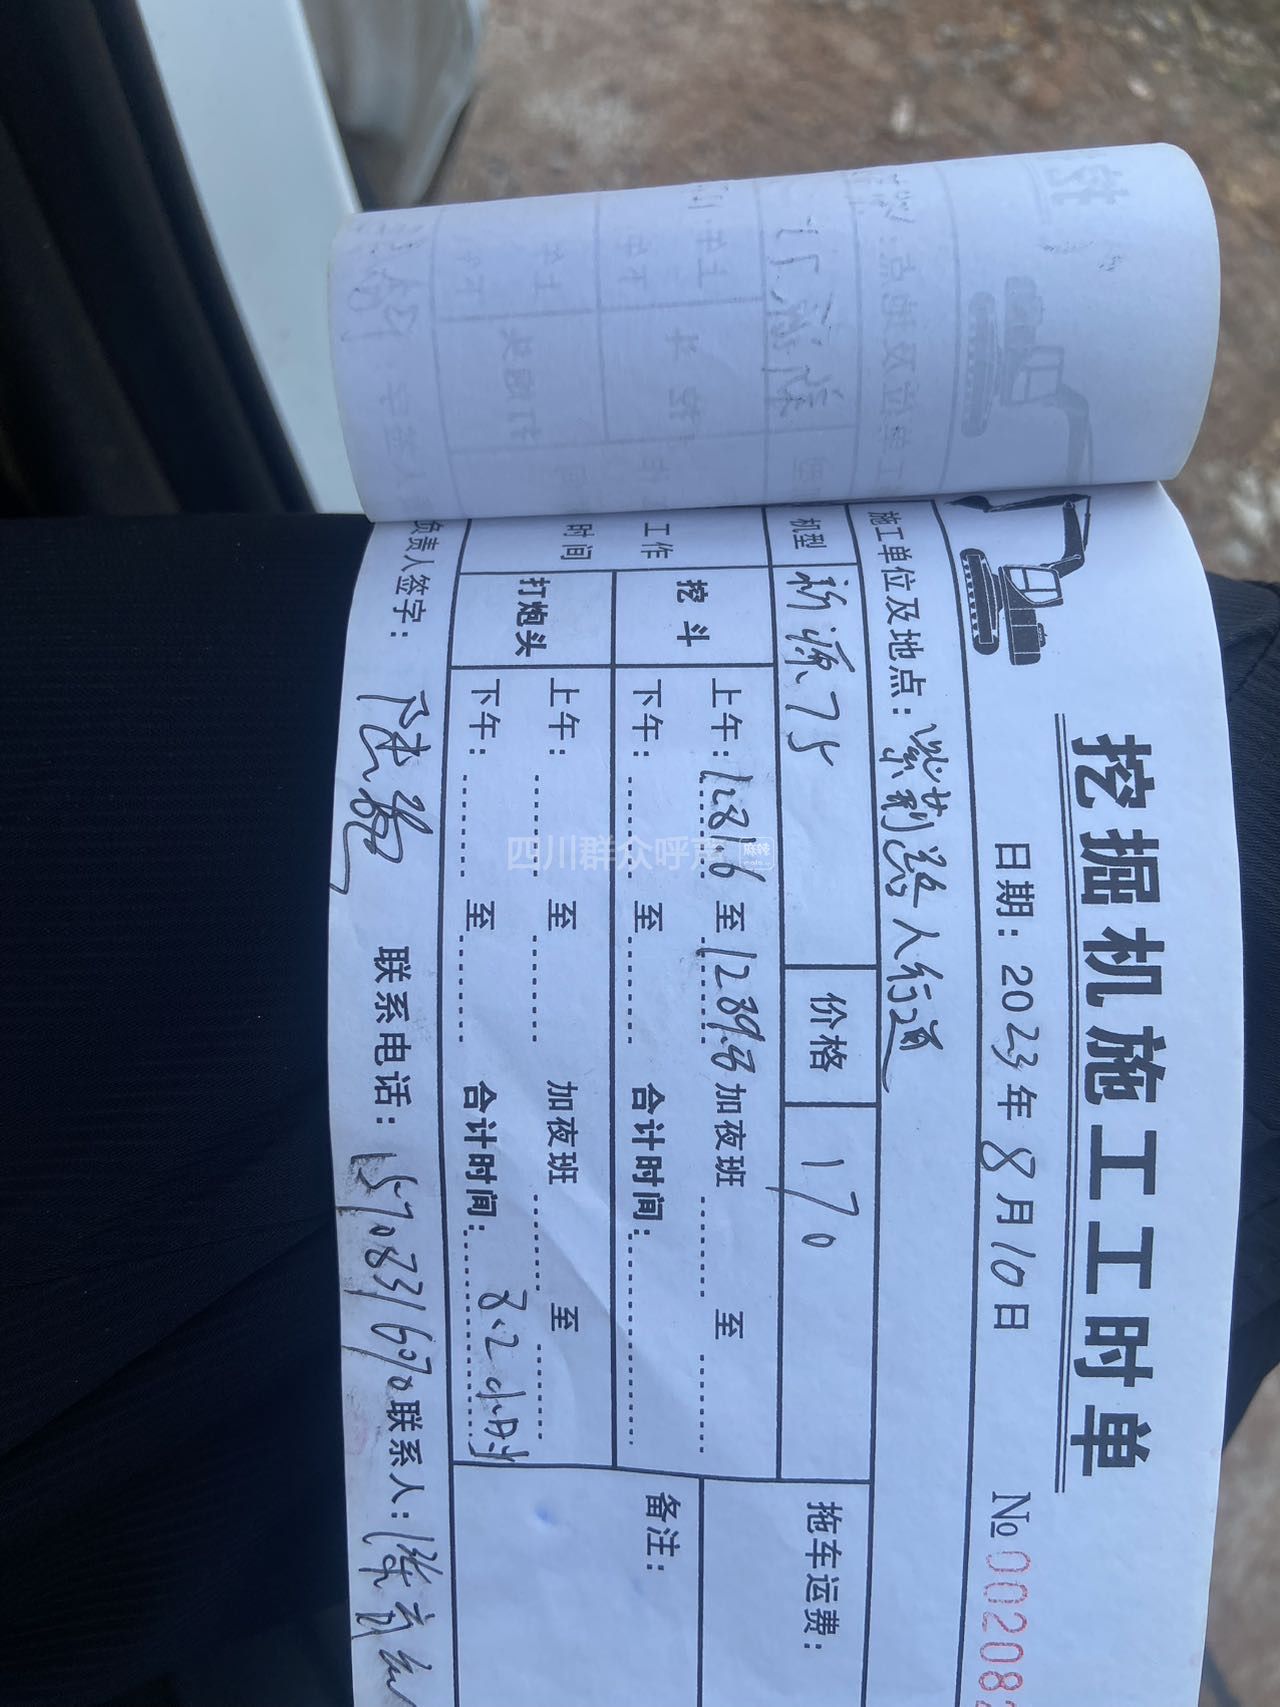 挖掘机施工工时单
日期: 2023年8月10日 №002082
施工单位及地点: 紫荊
人行通
机型 新源75 价格 170 拖车运费:
工作时间
挖斗 上午: 1281.6 至 1289.8 加夜班 至
下午: 至 合计时间: 备注:
打炮头 上午: 至 加夜班 至
下午: 至 合计时间: 8.2小时
负责人签字: 联系电话: 15708316070 联系人:
四川群众呼声 麻辣